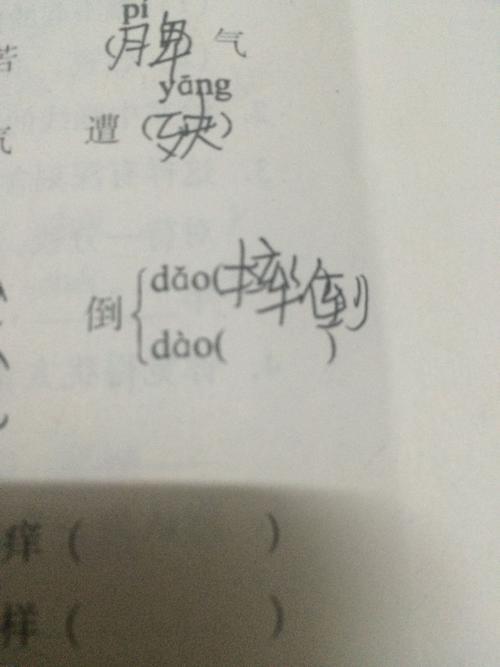 pí
苦 (脾) 气
yāng
气 遭 (殃)
倒 { dǎo(摔倒)
dào( )
痒 ( )
样 ( )